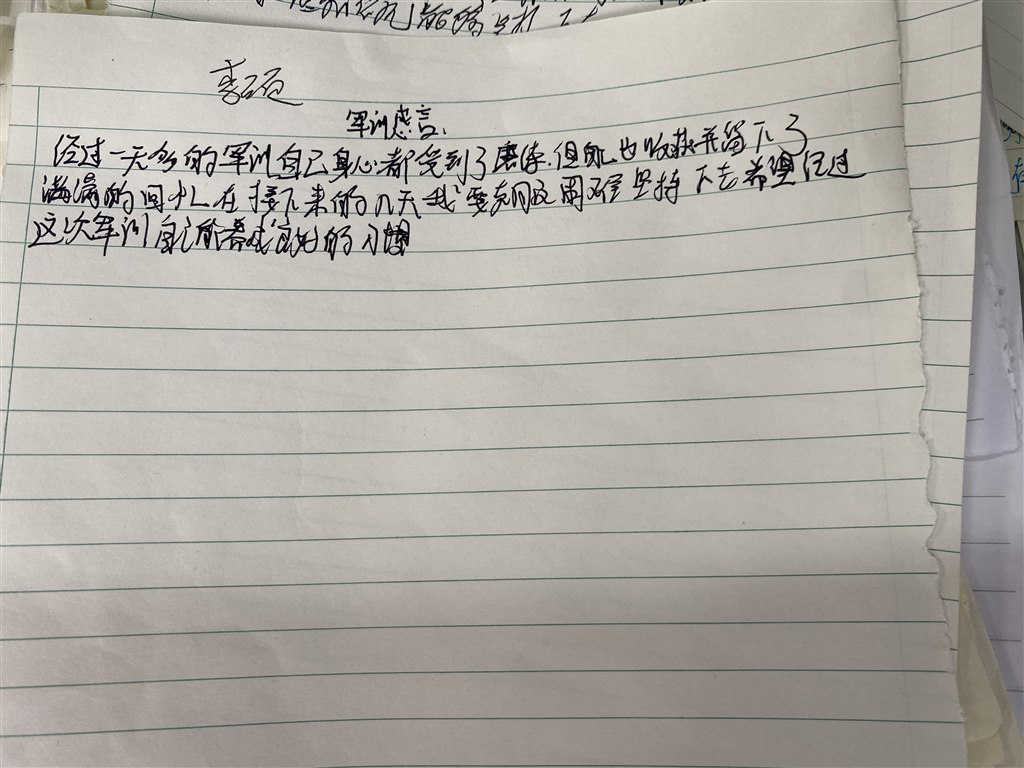 李硕
军训感言.
经过一天多的军训自己身心都受到了磨练.但是也收获并留下了
满满的回忆在接下来的几天我要克服困难坚持下去希望经过
这次军训自己能养成良好的习惯